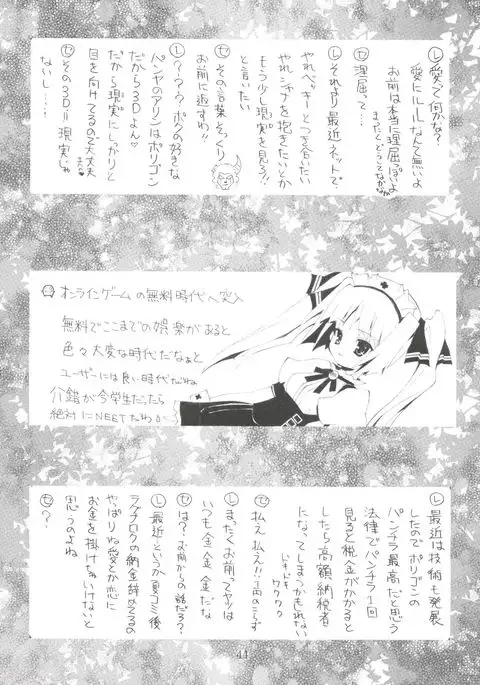 Ⓛ愛って何かな?
愛にルールなんて無いよ
お前は本当に理屈っぽいよ
まったくどうしてなかなか
Ⓣ理屈って…
Ⓛそれより最近ネットで、
やれベッキーとつき合いたい
やれシャナを抱きたいとか
もう少し現実を見ろ!!
と言いたい
Ⓣその言葉そっくり
お前に返すわ!!
Ⓛ???ボクの好きな
パンヤのアリンはポリゴン
だから3Dよん♡
だから現実にしっかりと
目を向けてるので大丈夫
Ⓣその3D=現実じゃ
ないし…!
オンラインゲームの無料時代へ突入
無料でここまでの娯楽があると
色々大変な時代だなぁと
ユーザーには良い時代だね
介錯が今学生だったら
絶対にNEETだわ
Ⓛ最近は技術も発展
したのでポリゴンの
パンチラ最高だと思う
法律でパンチラ1回
見ると税金がかかると
したら高額納税者
になってしまうかもしれない
ドキドキ
ワクワク
Ⓣ払え払え1円のこらず
Ⓛまったくお前ってヤツは
いつも金金金だな
Ⓣは?お前からの話だろ?
Ⓛ最近というか夏コミ後
ラグナロクの納金辞めてるの
やっぱりね愛とか恋に
お金を掛けちゃいけないと
思うのよね
Ⓣ?
44